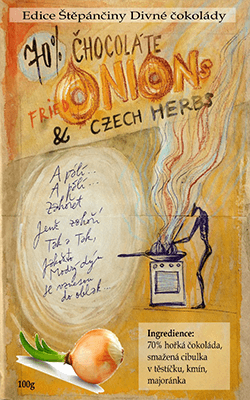 Edice Štěpánčiny Divné čokolády
70% ČHOCOLATE
FRIED ONIONs
& CZECH HERBS
A pálí...
A pálí...
Zhořet
Jenž zhoří
Tak a Tak,
Modrý dým
se vznesou
do oblak...
Ingredience:
70% hořká čokoláda,
smažená cibulka
v těstíčku, kmín,
majoránka
100g